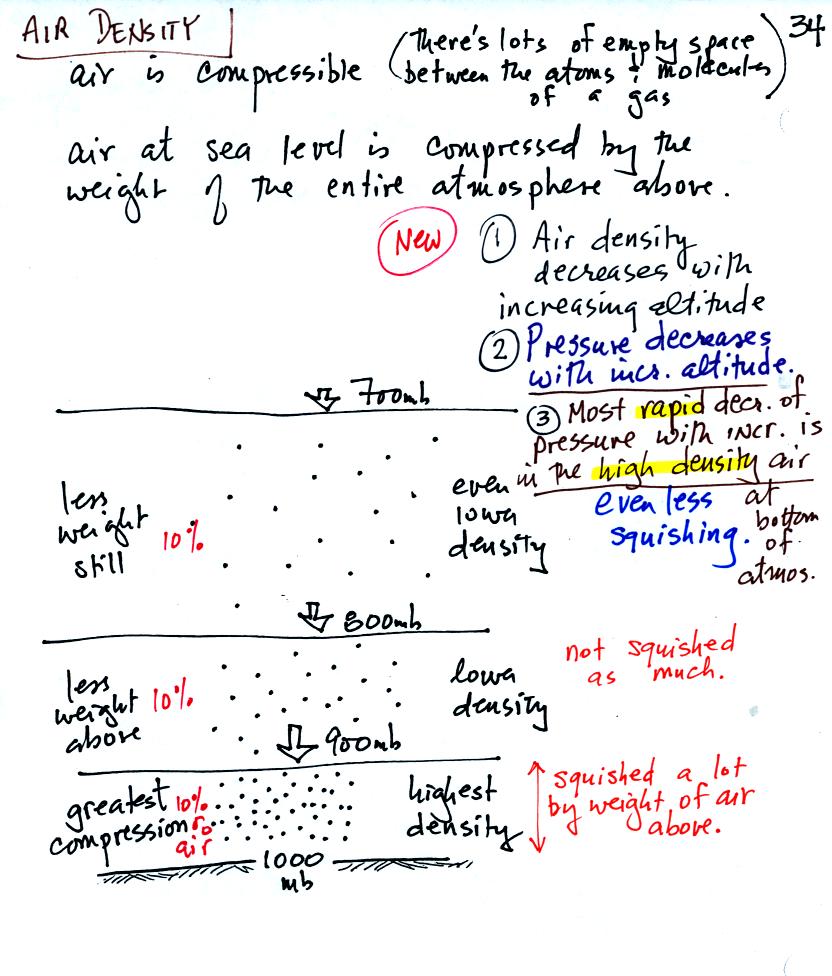 AIR DENSITY
34
air is compressible (there's lots of empty space
between the atoms & molecules
of a gas)
air at sea level is compressed by the
weight of the entire atmosphere above.
New
① Air density
decreases with
increasing altitude
② Pressure decreases
with incr. altitude.
③ Most rapid decr. of
pressure with incr. is
in the high density air
at
bottom
of
atmos.
700mb
less
weight
still
10%
even
lowa
density
even less
squishing.
800mb
less
weight
above
10%
lowa
density
not squished
as much.
900mb
greatest
compression
10%
air
highest
density
squished a lot
by weight of air
above.
1000
mb